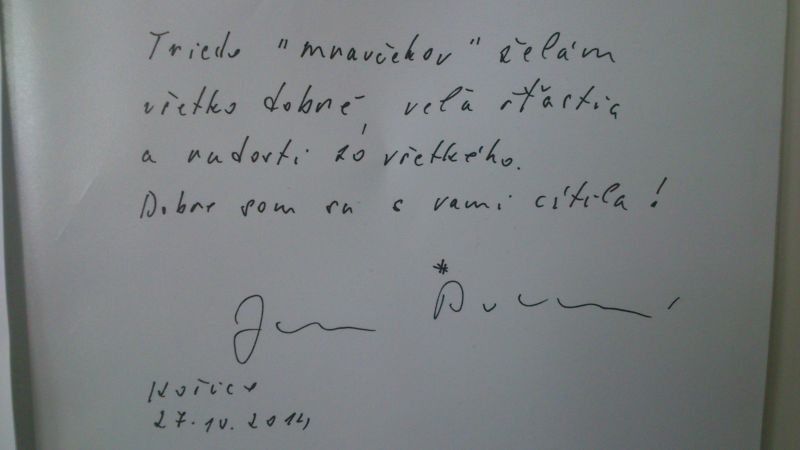 Triede "mnavčekov" želám
všetko dobré, veľa šťastia
a radosti zo všetkého.
Dobre som sa s vami cítila!
Košice
27.10.2014